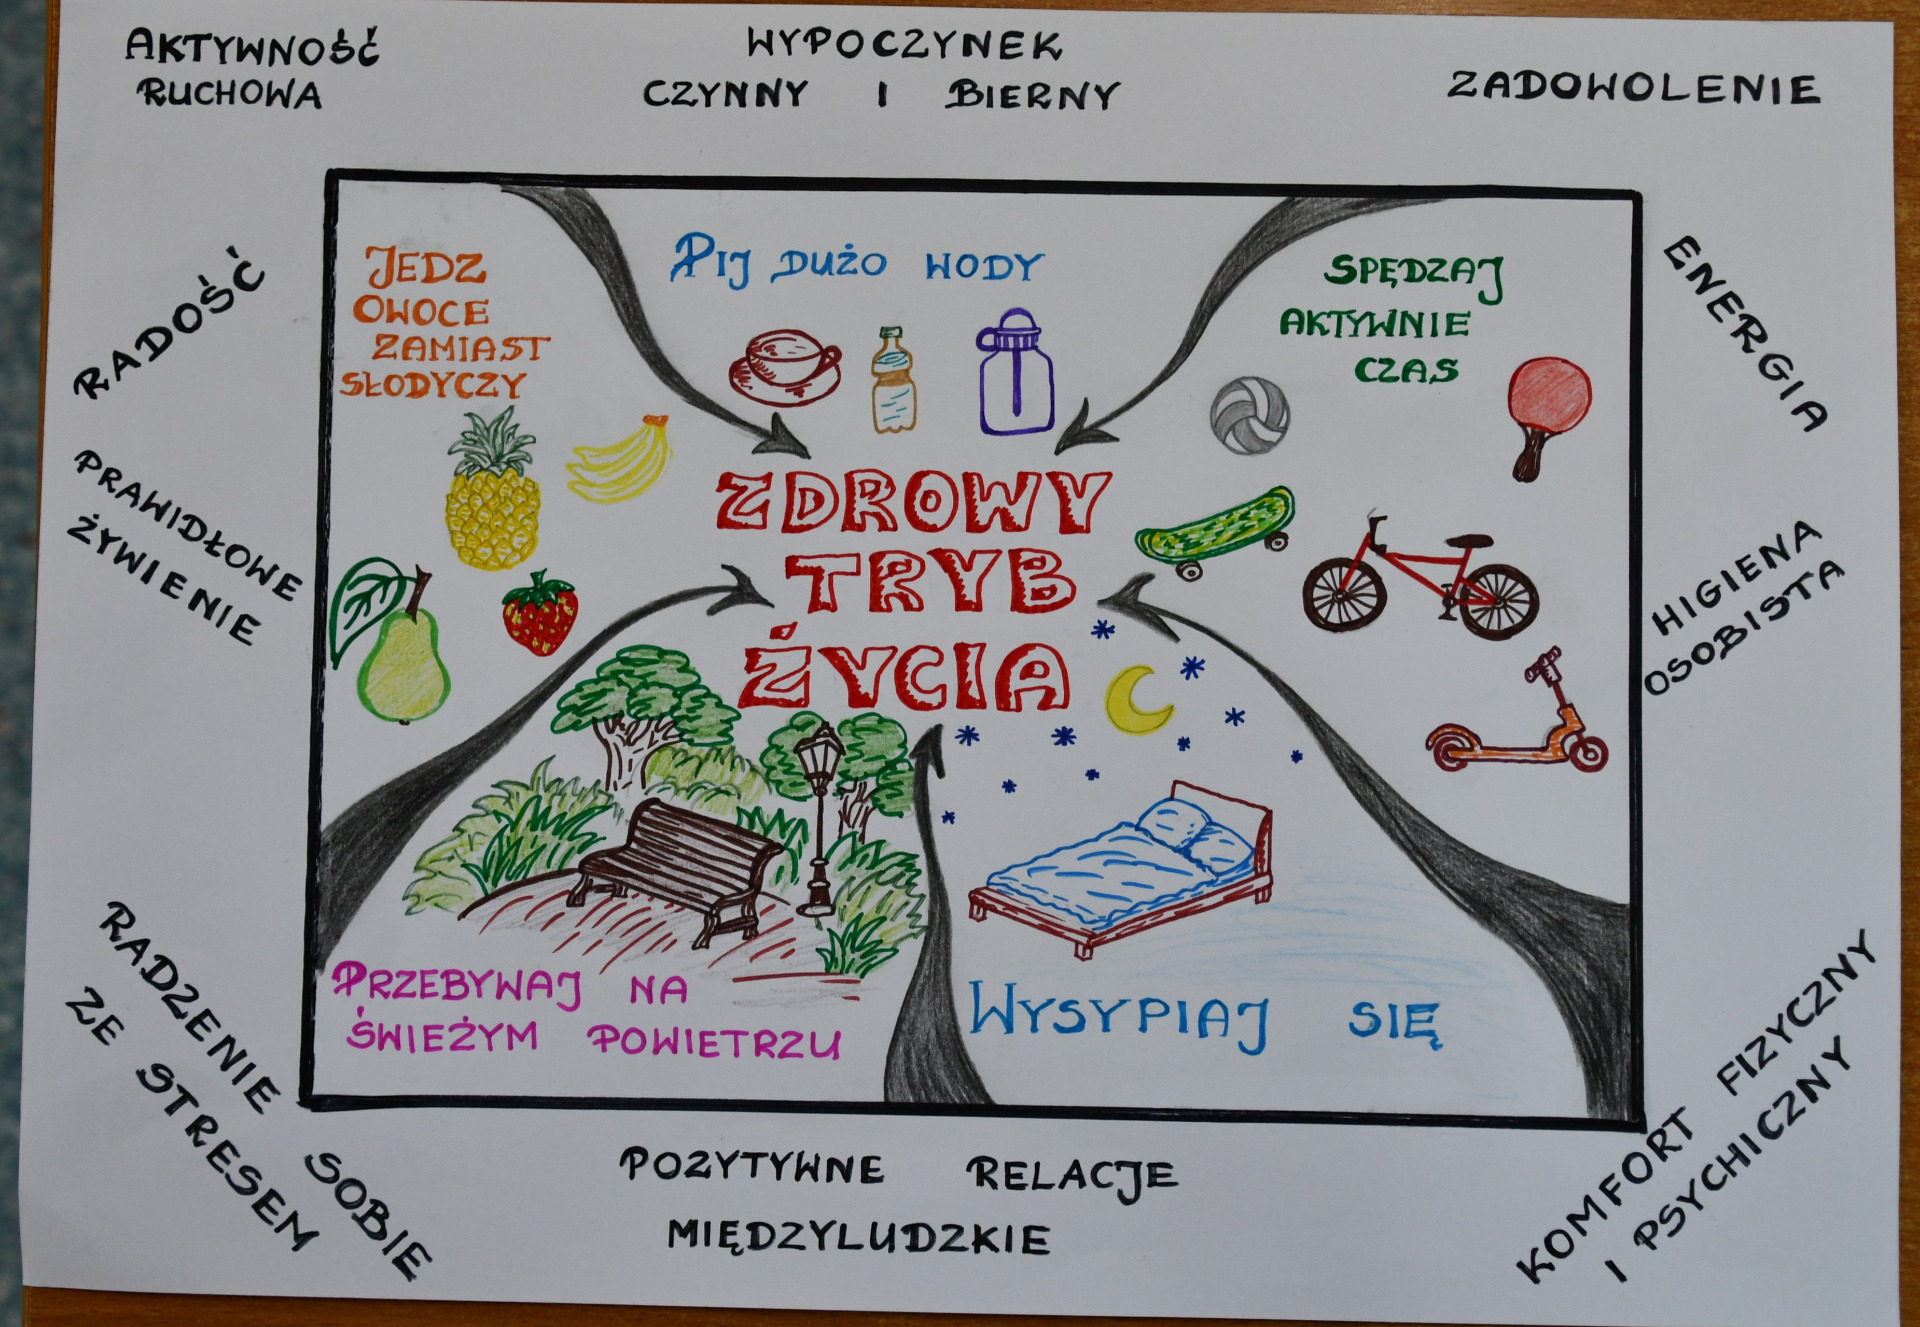 AKTYWNOŚĆ
RUCHOWA
WYPOCZYNEK
CZYNNY I BIERNY
ZADOWOLENIE
RADOŚĆ
PRAWIDŁOWE
ŻYWIENIE
RADZENIE SOBIE
ZE STRESEM
JEDZ
OWOCE
ZAMIAST
SŁODYCZY
PIJ DUŻO WODY
SPĘDZAJ
AKTYWNIE
CZAS
ZDROWY
TRYB
ŻYCIA
PRZEBYWAJ NA
ŚWIEŻYM POWIETRZU
WYSYPIAJ SIĘ
ENERGIA
HIGIENA
OSOBISTA
KOMFORT FIZYCZNY
I PSYCHICZNY
POZYTYWNE RELACJE
MIĘDZYLUDZKIE